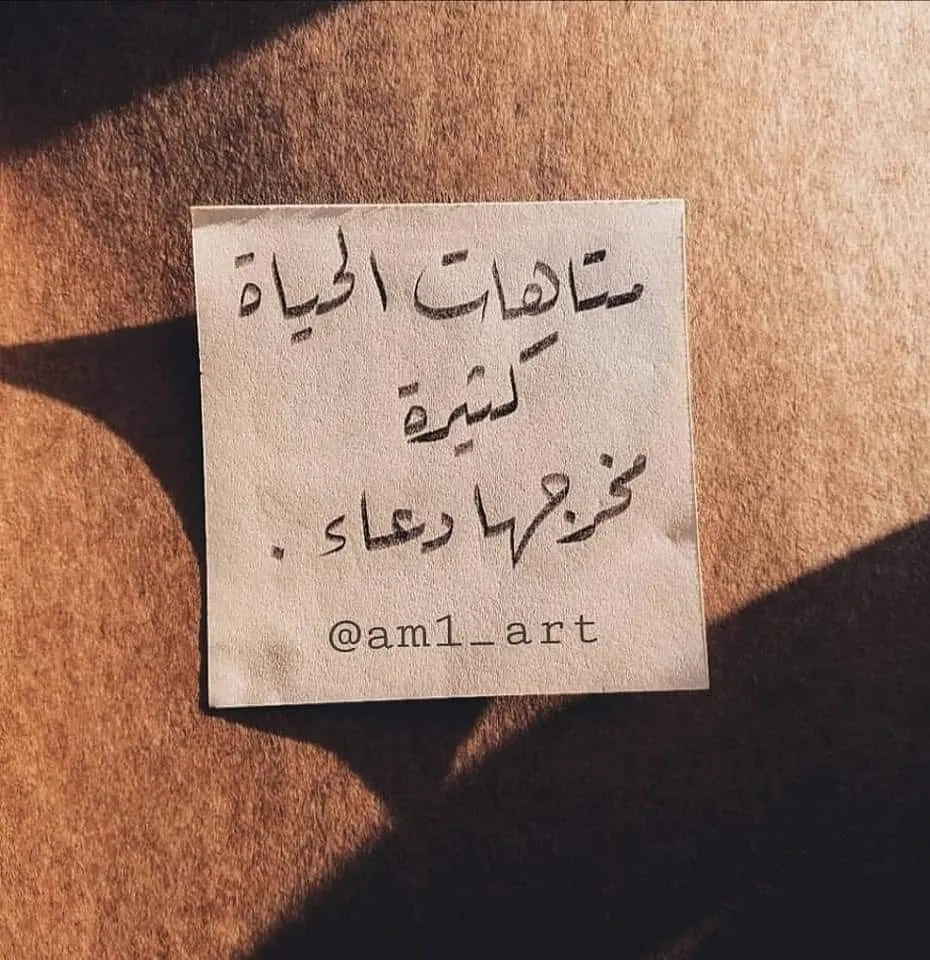 متاهات الحياة
كثيرة
مخرجها دعاء .
@am1_art